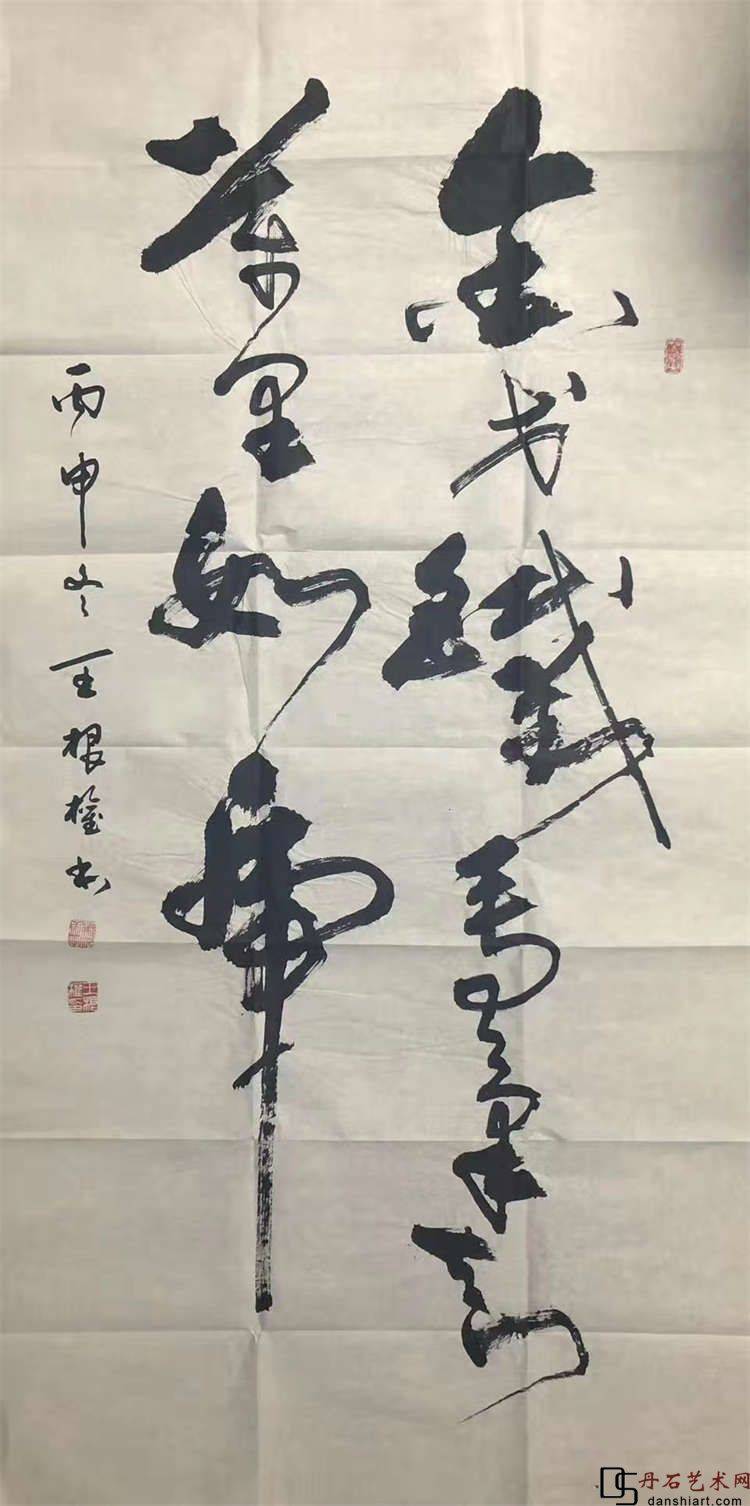 金戈鐵馬氣吞
萬里如虎
丙申冬王根權书
丹石艺术网
danshiart.com